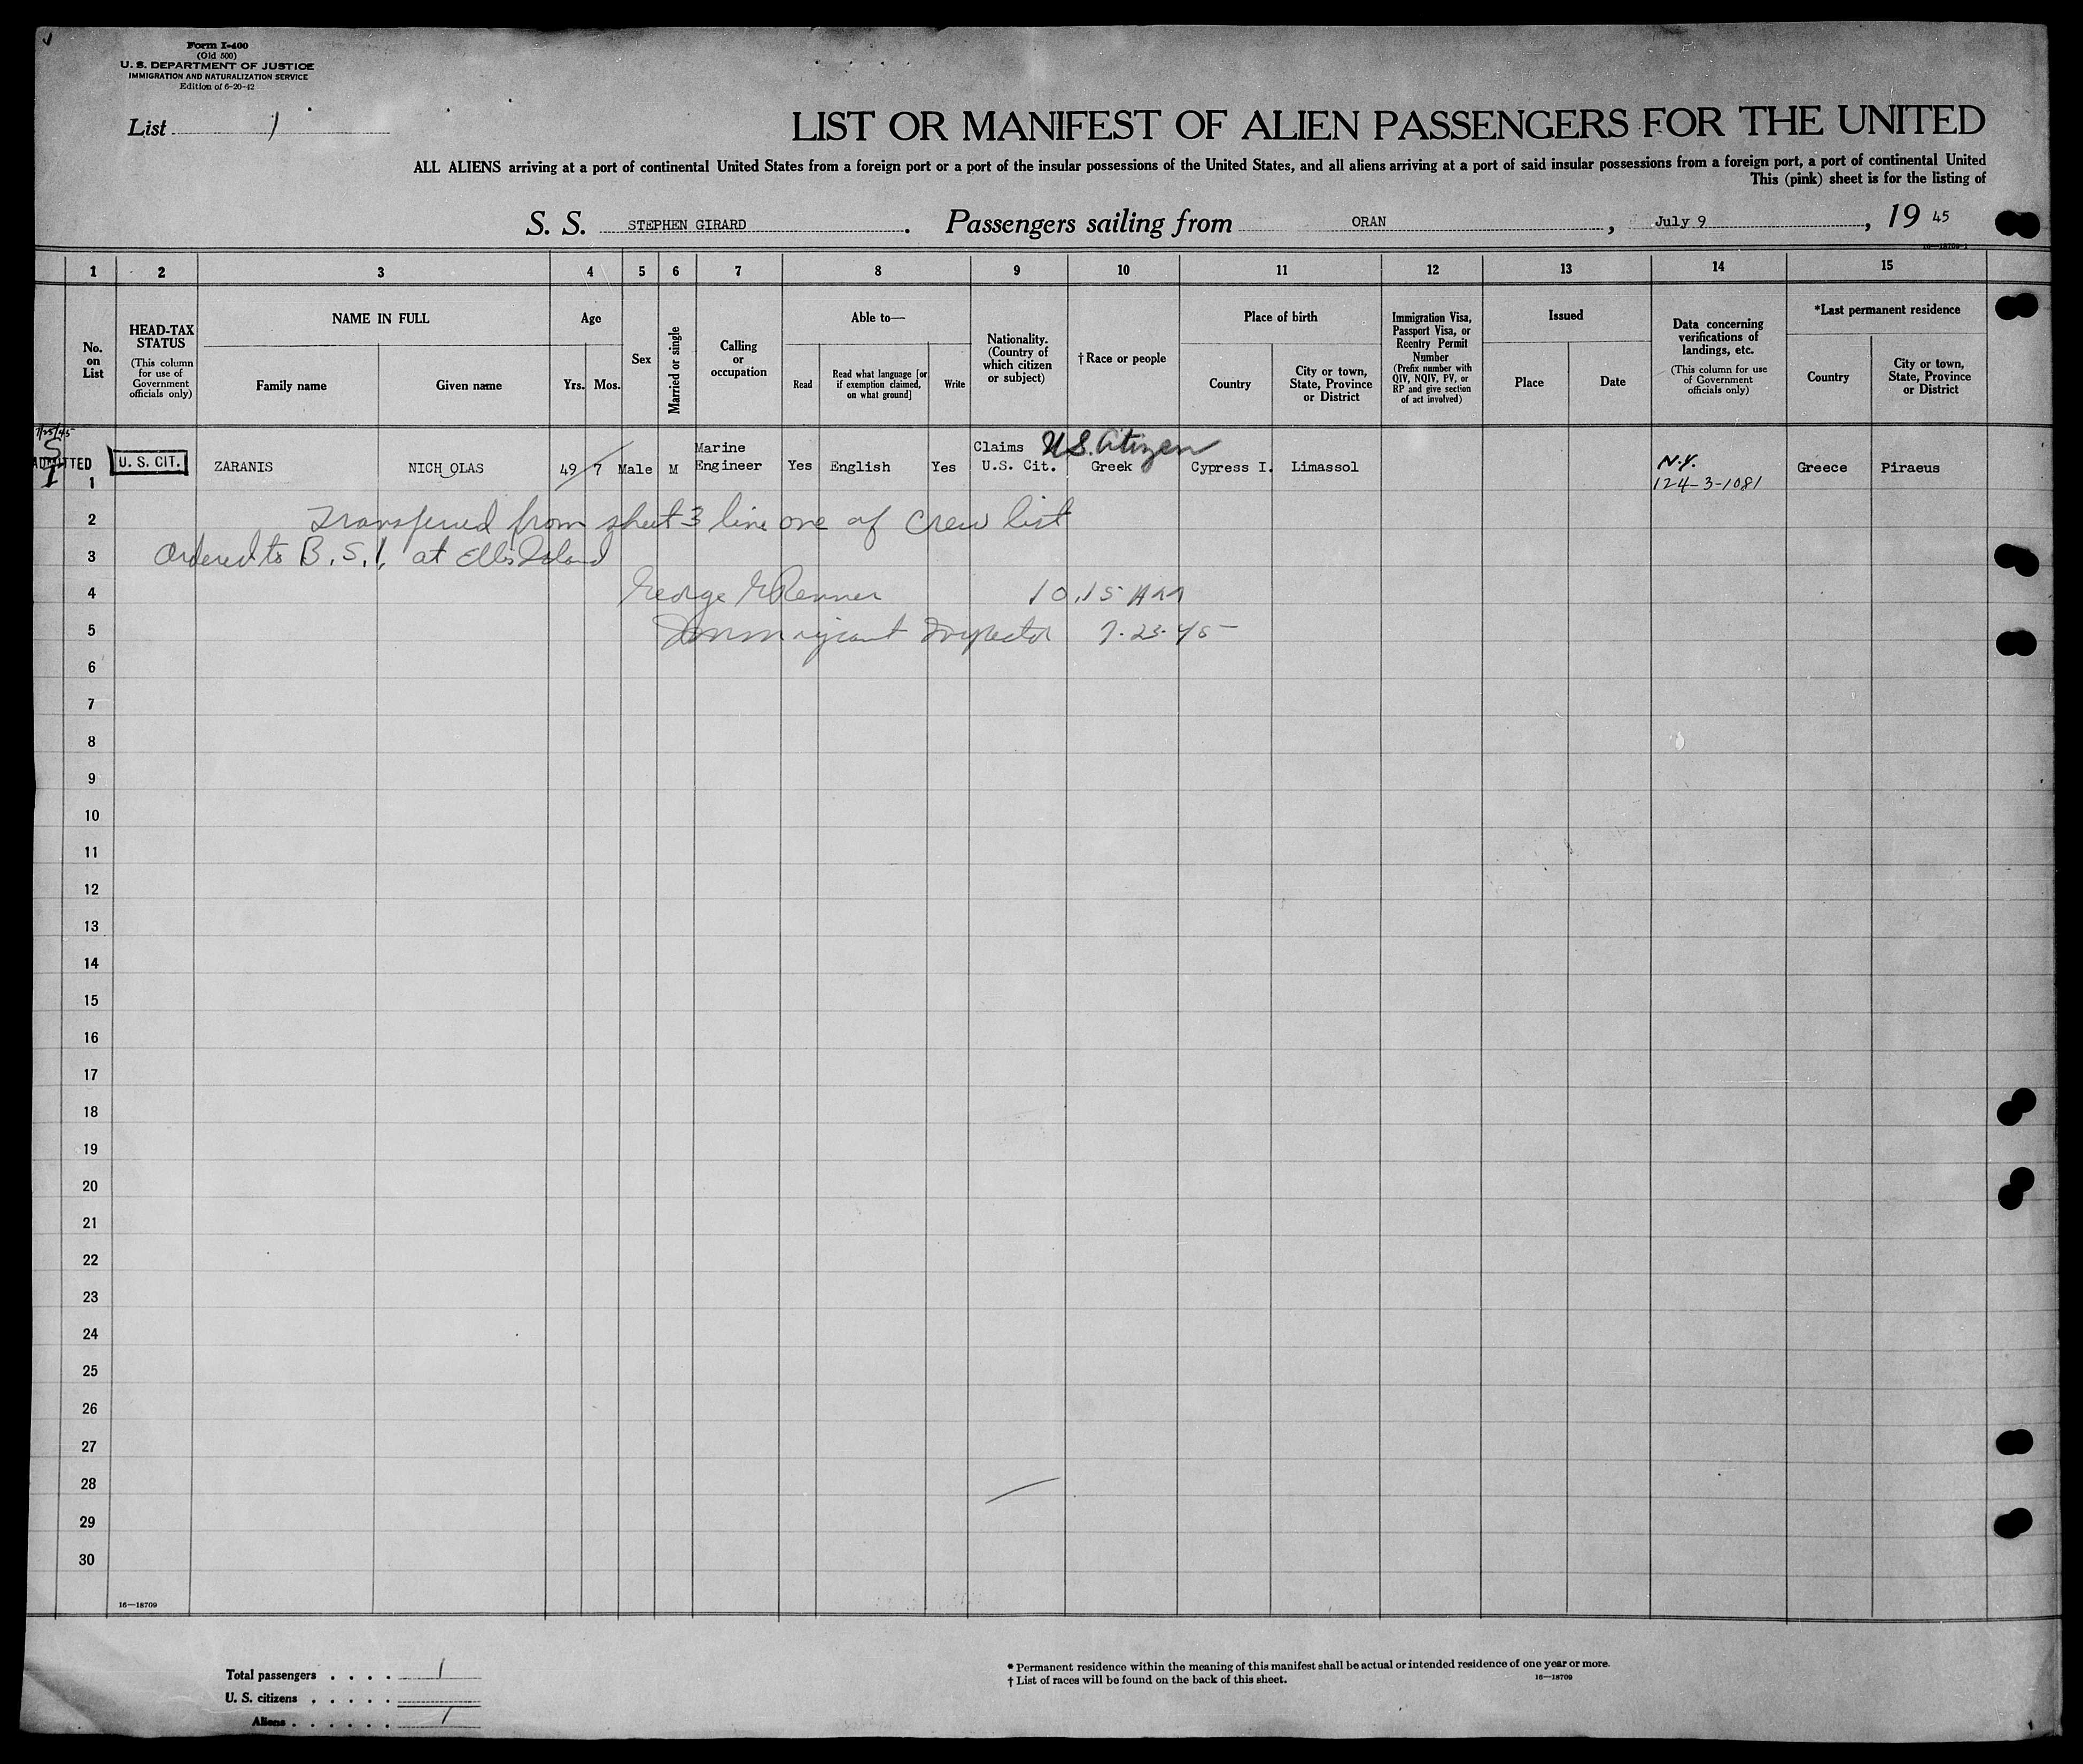 Form I-400
(Old 500)
U. S. DEPARTMENT OF JUSTICE
IMMIGRATION AND NATURALIZATION SERVICE
Edition of 6-20-42
List 1
LIST OR MANIFEST OF ALIEN PASSENGERS FOR THE UNITED
ALL ALIENS arriving at a port of continental United States from a foreign port or a port of the insular possessions of the United States, and all aliens arriving at a port of said insular possessions from a foreign port, a port of continental United
This (pink) sheet is for the listing of
S. S. STEPHEN GIRARD. Passengers sailing from ORAN, July 9, 19 45
1 2 3 4 5 6 7 8 9 10 11 12 13 14 15
No. on List
HEAD-TAX STATUS
(This column for use of Government officials only)
NAME IN FULL
Family name
Given name
Age
Yrs. Mos.
Sex
Married or single
Calling or occupation
Able to—
Read
Read what language [or if exemption claimed, on what ground]
Write
Nationality. (Country of which citizen or subject)
†Race or people
Place of birth
Country
City or town, State, Province or District
Immigration Visa, Passport Visa, or Reentry Permit Number
(Prefix number with QIV, NQIV, PV, or RP and give section of act involved)
Issued
Place
Date
Data concerning verifications of landings, etc.
(This column for use of Government officials only)
*Last permanent residence
Country
City or town, State, Province or District
7/25/45
S I
ADMITTED
1 U. S. CIT. ZARANIS NICHOLAS 49 7 Male M Marine Engineer Yes English Yes Claims U.S. Cit. U.S. Citizen Greek Cypress I. Limassol N.Y. 124-3-1081 Greece Piraeus
2 Transferred from sheet 3 line one of crew list
3 Ordered to B.S.I. at Ellis Island
4 George Renner 10.15 AM
5 Immigrant Inspector 7-23-45
6
7
8
9
10
11
12
13
14
15
16
17
18
19
20
21
22
23
24
25
26
27
28
29
30
16—18709
Total passengers . . . . 1
U. S. citizens . . . . .
Aliens . . . . . . 1
* Permanent residence within the meaning of this manifest shall be actual or intended residence of one year or more.
† List of races will be found on the back of this sheet.
16—18709